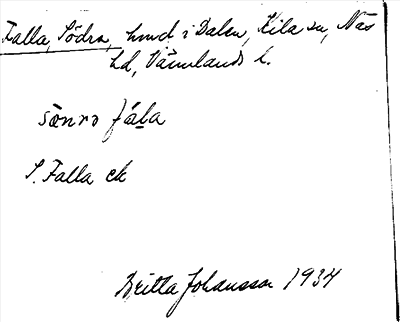 Falla, Södra, hmd i Dalen, Kila sn, Näs
hd, Värmlands l.
sönrə fála
S. Falla ek
Britta Johansson 1934